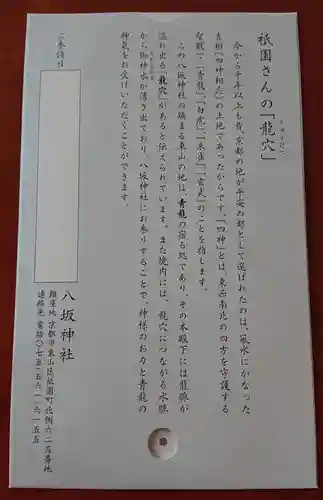 祇園さんの「龍穴」
りゅうけつ
今から千年以上も昔、京都の地が平安の都として選ばれたのは、風水にかなった
吉相（四神相応）の土地であったからです。「四神」とは、東西南北の四方を守護する
聖獣・「青龍」「白虎」「朱雀」「玄武」のことを指します。
この八坂神社の鎮まる東山の地は、青龍の宿る処であり、その本殿下には龍脈が
溢れ出る「龍穴」があると伝えられています。また境内には、龍穴につながる水脈
から御神水が湧き出ており、八坂神社にお参りすることで、神様のお力と青龍の
神気をお受けいただくことができます。
ご参拝日
八坂神社
鎮座地 京都市東山区祇園町北側六二五番地
連絡先 電話〇七五-五六一-六一五五